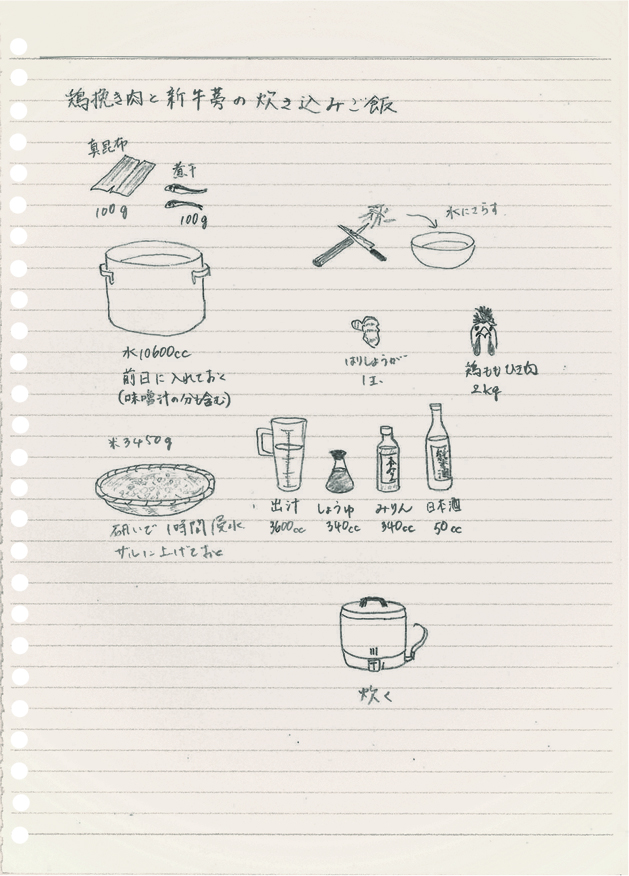 鶏挽き肉と新牛蒡の炊き込みご飯
真昆布
100g
煮干
100g
水10600cc
前日に入れておく
(味噌汁の分も含む)
水にさらす
はりしょうが
1玉
鶏ももひき肉
2kg
米3450g
研いで 1時間浸水
ザルに上げておく
出汁
3600cc
しょうゆ
340cc
みりん
340cc
日本酒
50cc
炊く